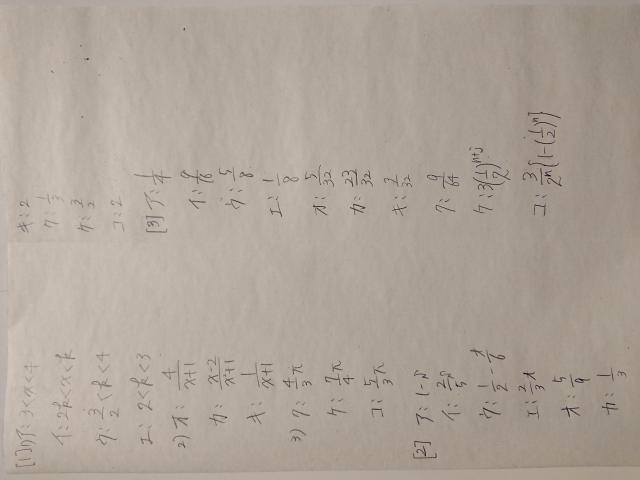 [1] 1) ア: 3<x<4
イ: 2k<x<k
ウ: 3/2<k<4
エ: 2<k<3
2) オ: 4/(x+1)
カ: (x-2)/(x²+1)
キ: 1/(x+1)
3) ク: 4/3 π
ケ: 7/4 π
コ: 5/3 π
[2] ア:
イ:
ウ:
エ:
オ: 5/9
カ: 1/3
キ: 2
ク: 1/3
ケ: 3/2
コ: 2
[3] ア: 1/4
イ:
ウ: 5/8
エ: 1/8
オ: 5/32
カ: 23/32
キ: 7/32
ク: 9/64
ケ: 3(1/2)^(n+j)
コ: 3/2ⁿ{1-(1/2)ⁿ}